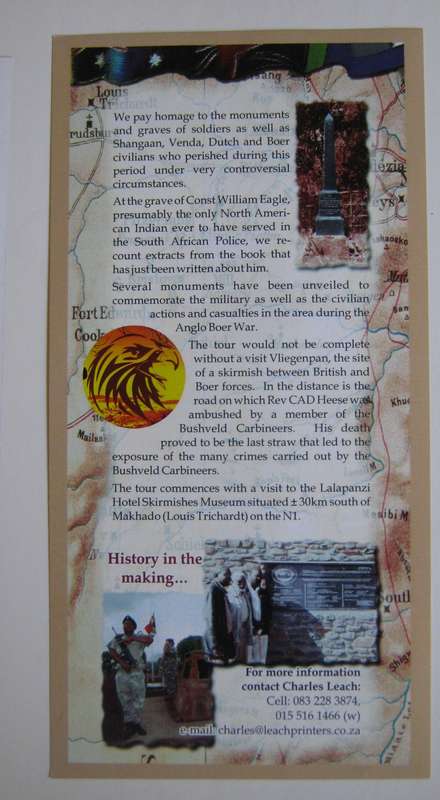 Louis
Trichardt
We pay homage to the monuments
and graves of soldiers as well as
Shangaan, Venda, Dutch and Boer
civilians who perished during this
period under very controversial
circumstances.
At the grave of Const William Eagle,
presumably the only North Ameri-
can Indian ever to have served in
the South African Police, we re-
count extracts from the book that
has just been written about him.
Several monuments have been unveiled to
commemorate the military as well as the civilian
actions and casualties in the area during the
Anglo Boer War.
Fort Edward
Cook
The tour would not be complete
without a visit Vliegenpan, the site
of a skirmish between British and
Boer forces. In the distance is the
road on which Rev CAD Heese was
ambushed by a member of the
Bushveld Carbineers. His death
proved to be the last straw that led to the
exposure of the many crimes carried out by the
Bushveld Carbineers.
The tour commences with a visit to the Lalapanzi
Hotel Skirmishes Museum situated ± 30km south of
Makhado (Louis Trichardt) on the N1.
History in the
making...
For more information
contact Charles Leach:
Cell: 083 228 3874,
015 516 1466 (w)
e-mail: charles@leachprinters.co.za